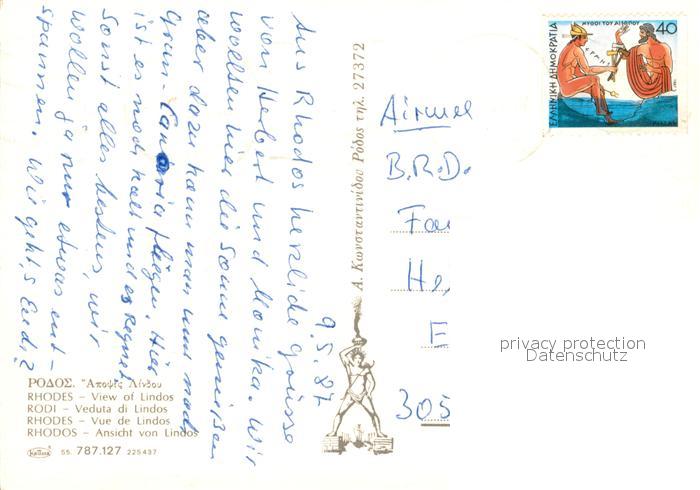 9.5.87
Aus Rhodos herzliche Grüsse
von Herbert und Monika. Wir
wollten hier die Sonne genießen
aber dazu kann man nur nach
Gran-Canaria fliegen. Hier
ist es noch kalt und es regnet
Sonst alles bestens, wir
wollen ja nur etwas ent-
spannen. Wie geht,s Euch?
ΡΟΔΟΣ. Ἄποψις Λίνδου
RHODES – View of Lindos
RODI – Veduta di Lindos
RHODES – Vue de Lindos
RHODOS – Ansicht von Lindos
55. 787.127 225437
Α. Κωνσταντινίδου Ρόδος τηλ. 27372
ΕΛΛΗΝΙΚΗ ΔΗΜΟΚΡΑΤΙΑ
ΜΥΘΟΙ ΤΟΥ ΑΙΣΩΠΟΥ
40
ΕΡΜΗΣ
Airmail
B.R.D.
Fa
He
E
305
privacy protection
Datenschutz